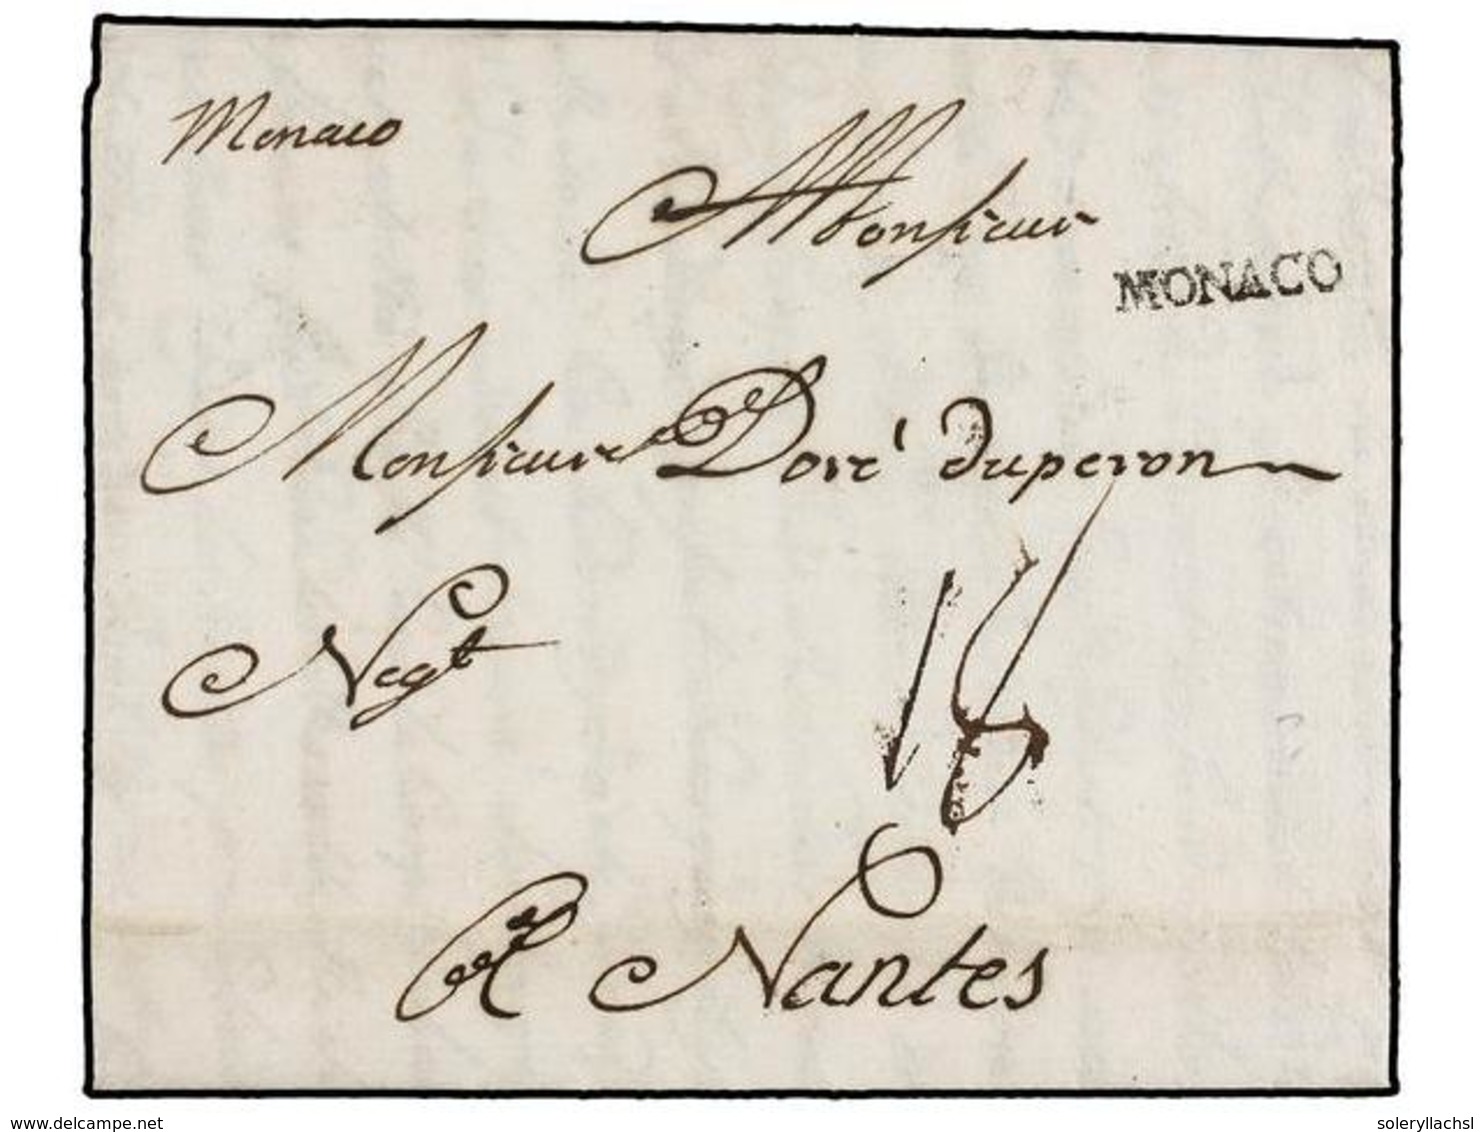 Monaco
Monsieur
MONACO
Monsieur Doré duperon
Negt
18
A Nantes
www.delcampe.net
soleryllachsl